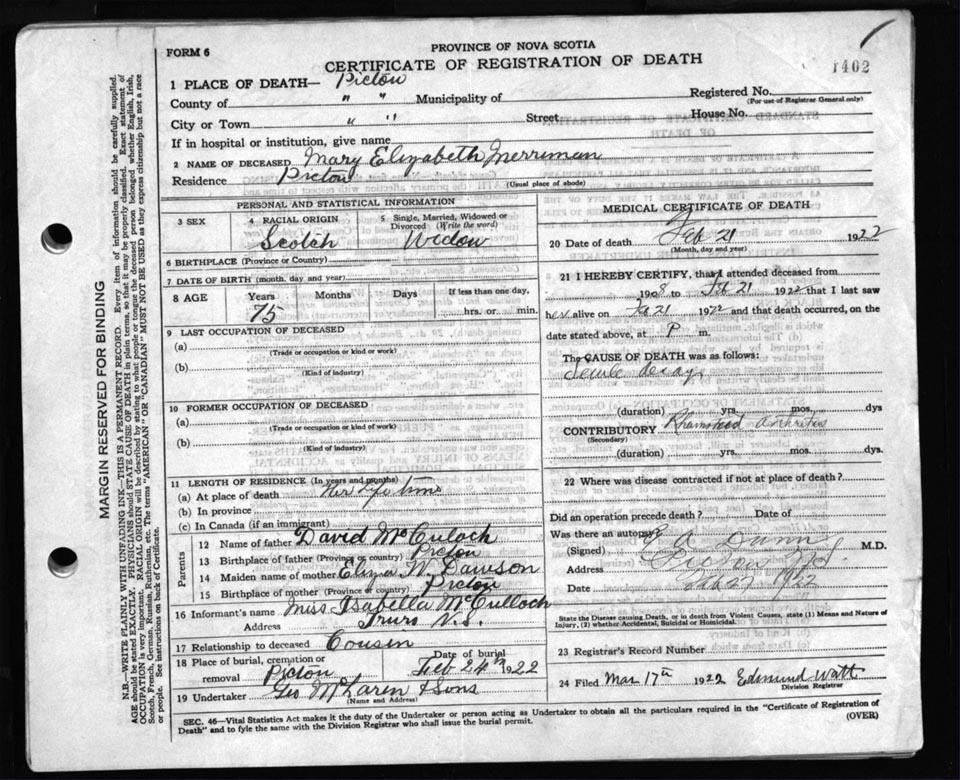 FORM 6
PROVINCE OF NOVA SCOTIA
CERTIFICATE OF REGISTRATION OF DEATH
1402
1 PLACE OF DEATH— Pictou
County of " " Municipality of
Registered No.
(For use of Registrar General only)
City or Town " " Street House No.
If in hospital or institution, give name
2 NAME OF DECEASED Mary Elizabeth Merriman
Residence Pictou
(Usual place of abode)
PERSONAL AND STATISTICAL INFORMATION
3 SEX
4 RACIAL ORIGIN
Scotch
5 Single, Married, Widowed or Divorced (Write the word)
Widow
6 BIRTHPLACE (Province or Country)
7 DATE OF BIRTH (month, day and year)
8 AGE Years Months Days If less than one day,
75 hrs. or min.
9 LAST OCCUPATION OF DECEASED
(a)
(Trade or occupation or kind or work)
(b)
(Kind of industry)
10 FORMER OCCUPATION OF DECEASED
(a)
(Trade or occupation or kind of work)
(b)
(Kind of industry)
11 LENGTH OF RESIDENCE (In years and months)
(a) At place of death Her life time
(b) In province
(c) In Canada (if an immigrant)
Parents
12 Name of father David McCuloch
13 Birthplace of father (Province or country) Pictou
14 Maiden name of mother Eliza W Dawson
15 Birthplace of mother (Province or country) Pictou
16 Informant's name Miss Isabella McCulloch
Address Truro N.S.
17 Relationship to deceased Cousin
18 Place of burial, cremation or removal Pictou
Date of burial
Feb 24th 1922
19 Undertaker Geo McLaren & Sons
(Name and Address)
MEDICAL CERTIFICATE OF DEATH
20 Date of death Feb 21 1922
(Month, day and year)
21 I HEREBY CERTIFY, that I attended deceased from
1908 to Feb 21 1922 that I last saw
her alive on Feb 21 1922 and that death occurred, on the
date stated above, at P m.
The CAUSE OF DEATH was as follows:
Senile decay
(duration) yrs. mos. dys
CONTRIBUTORY Rhumatoid arthritis
(Secondary)
(duration) yrs. mos. dys.
22 Where was disease contracted if not at place of death?
Did an operation precede death? Date of
Was there an autopsy
(Signed) Dunn M.D.
Address Pictou N.S.
Date Feb 27 1922
State the Disease causing Death, or in death from Violent Causes, state (1) Means and Nature of
Injury, (2) whether Accidental, Suicidal or Homicidal.
23 Registrar's Record Number
24 Filed Mar 17th 1922 Edmund Watt
Division Registrar
SEC. 46—Vital Statistics Act makes it the duty of the Undertaker or person acting as Undertaker to obtain all the particulars required in the "Certificate of Registration of
Death" and to fyle the same with the Division Registrar who shall issue the burial permit.
(OVER)
MARGIN RESERVED FOR BINDING
N.B.—WRITE PLAINLY WITH UNFADING INK—THIS IS A PERMANENT RECORD. Every item of information should be carefully supplied.
AGE should be stated EXACTLY. PHYSICIANS should STATE CAUSE OF DEATH in plain terms, so that it may be properly classified. Exact statement of
OCCUPATION is very important. RACIAL ORIGIN will be described by stating to what people or tongue the deceased person belonged whether English, Irish,
Scotch, French, German, Russian, Ruthenian, etc. The terms "AMERICAN" OR "CANADIAN" MUST NOT BE USED as they express citizenship but not a race
or people. See instructions on back of Certificate.